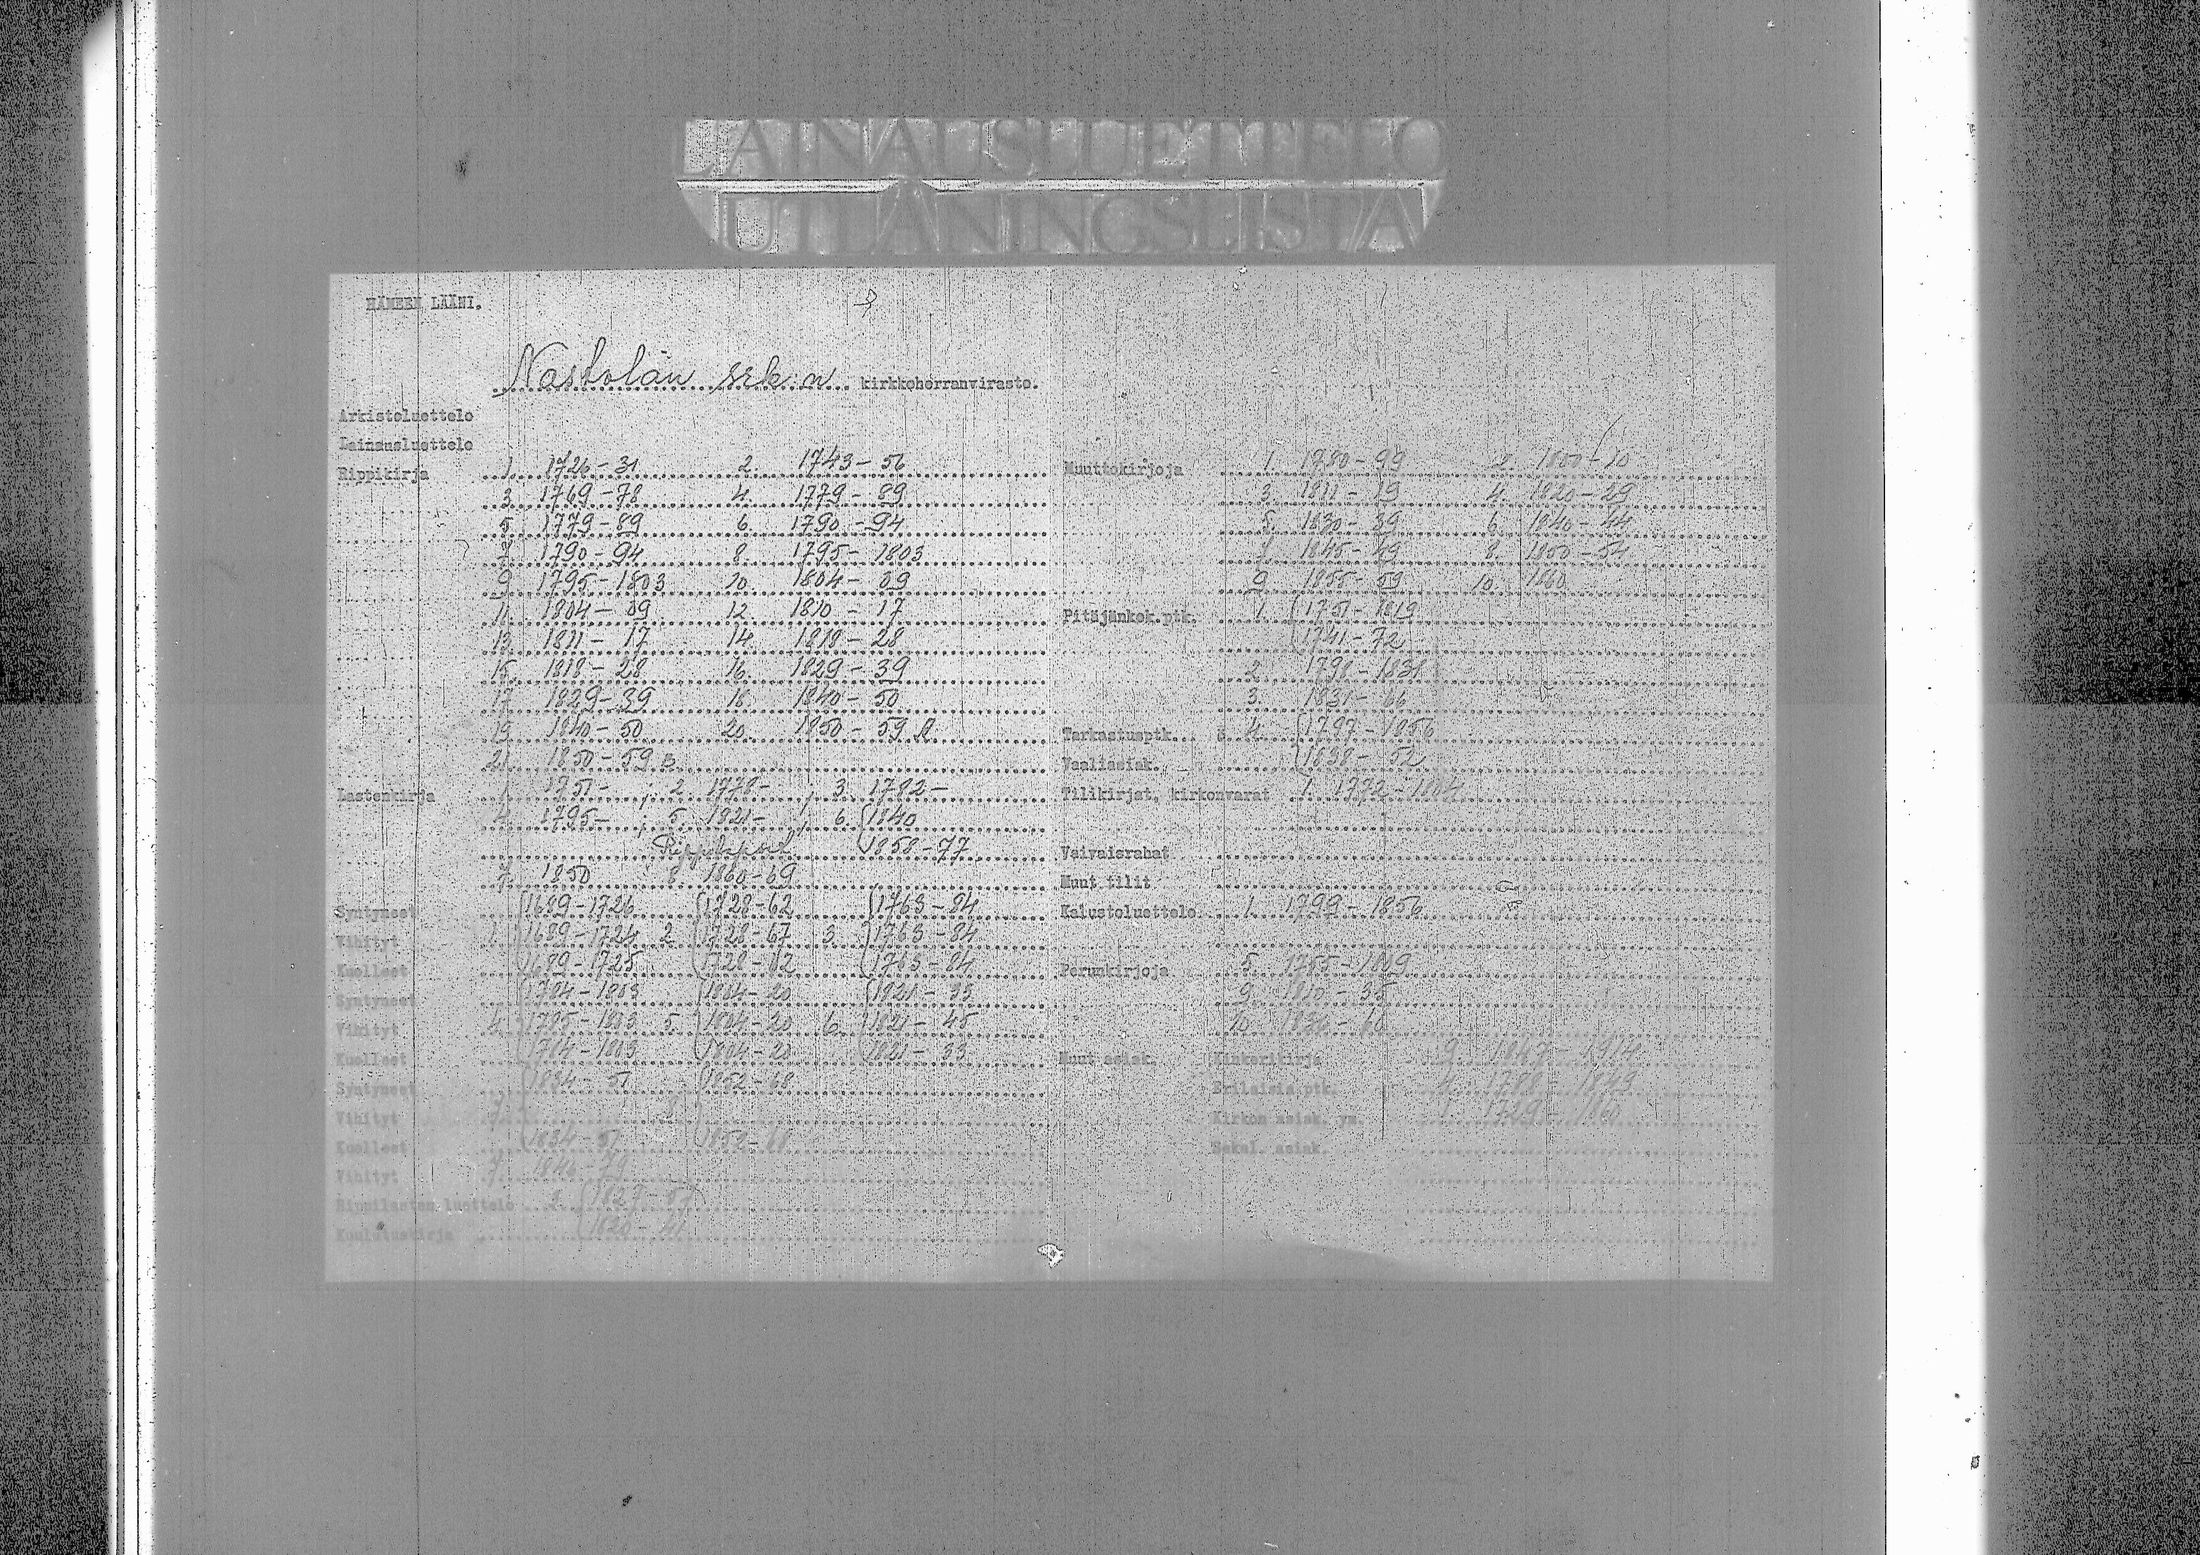 LAINAUSLUETTELO
UTLÅNINGSLISTA
HÄMEEN LÄÄNI.
Nastolan srk:n kirkkoherranvirasto.
Arkistoluettelo
Lainausluettelo
Rippikirja 1. 1726-31 2. 1743-56
3. 1769-78 4. 1779-89
5. 1779-89 6. 1790-94
7. 1790-94 8. 1795-1803
9. 1795-1803 10. 1804-09
11. 1804-09 12. 1810-17
13. 1811-17 14. 1818-28
15. 1818-28 16. 1829-39
17. 1829-39 18. 1840-50
19. 1840-50 20. 1850-59 A
21. 1850-59 B
Lastenkirja 1. 1751- ; 2. 1778- ; 3. 1782-
4. 1795- ; 5. 1821- ; 6. 1840
1858-77
7. 1850 8. 1860-69
Syntyneet 1689-1726 1728-62 1763-84
Vihityt 1. 1689-1724 2. 1728-67 3. 1763-84
Kuolleet 1689-1725 1728-62 1763-84
Syntyneet 1784-1803 1804-20 1821-33
Vihityt 4. 1785-1803 5. 1804-20 6. 1821-45
Kuolleet 1784-1803 1804-20 1821-33
Syntyneet 1834-51 1852-68
Vihityt 7. 8.
Kuolleet 1834-51 1852-68
Vihityt 7. 1846-79
Rippilasten luettelo 1827-57
Kuulutuskirja 1820-41
Muuttokirjoja 1. 1780-99 2. 1800-10
3. 1811-19 4. 1820-29
5. 1830-39 6. 1840-44
7. 1845-49 8. 1850-54
9. 1855-59 10. 1860
Pitäjänkok.ptk. 1. 1751-1819
1741-72
2. 1798-1831
3. 1831-66
Tarkastusptk. 4. 1797-1856
Vaaliasiak. 1838-52
Tilikirjat, kirkonvarat 1. 1772-1804
Vaivaisrahat
Muut tilit
Kalustoluettelo 1. 1799-1856
Perunkirjoja 5. 1755-1809
9. 1810-35
10. 1836-60
Muut asiak. Kinkerikirja 9. 1847-1914
Erilaisia ptk. 4. 1788-1843
Kirkon asiak. ym. 1. 1729-1860
Sekal. asiak.